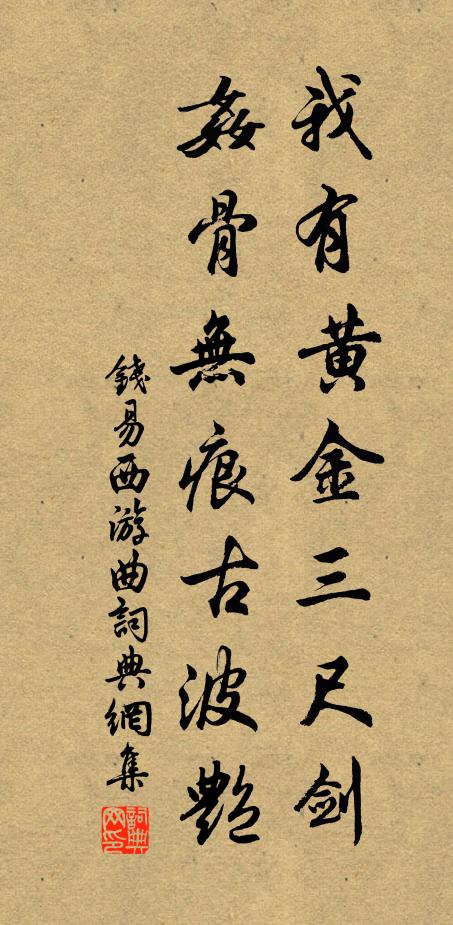 我有黄金三尺剑
姦骨無痕古波艷
錢易西游曲詞典網集
詞典網印